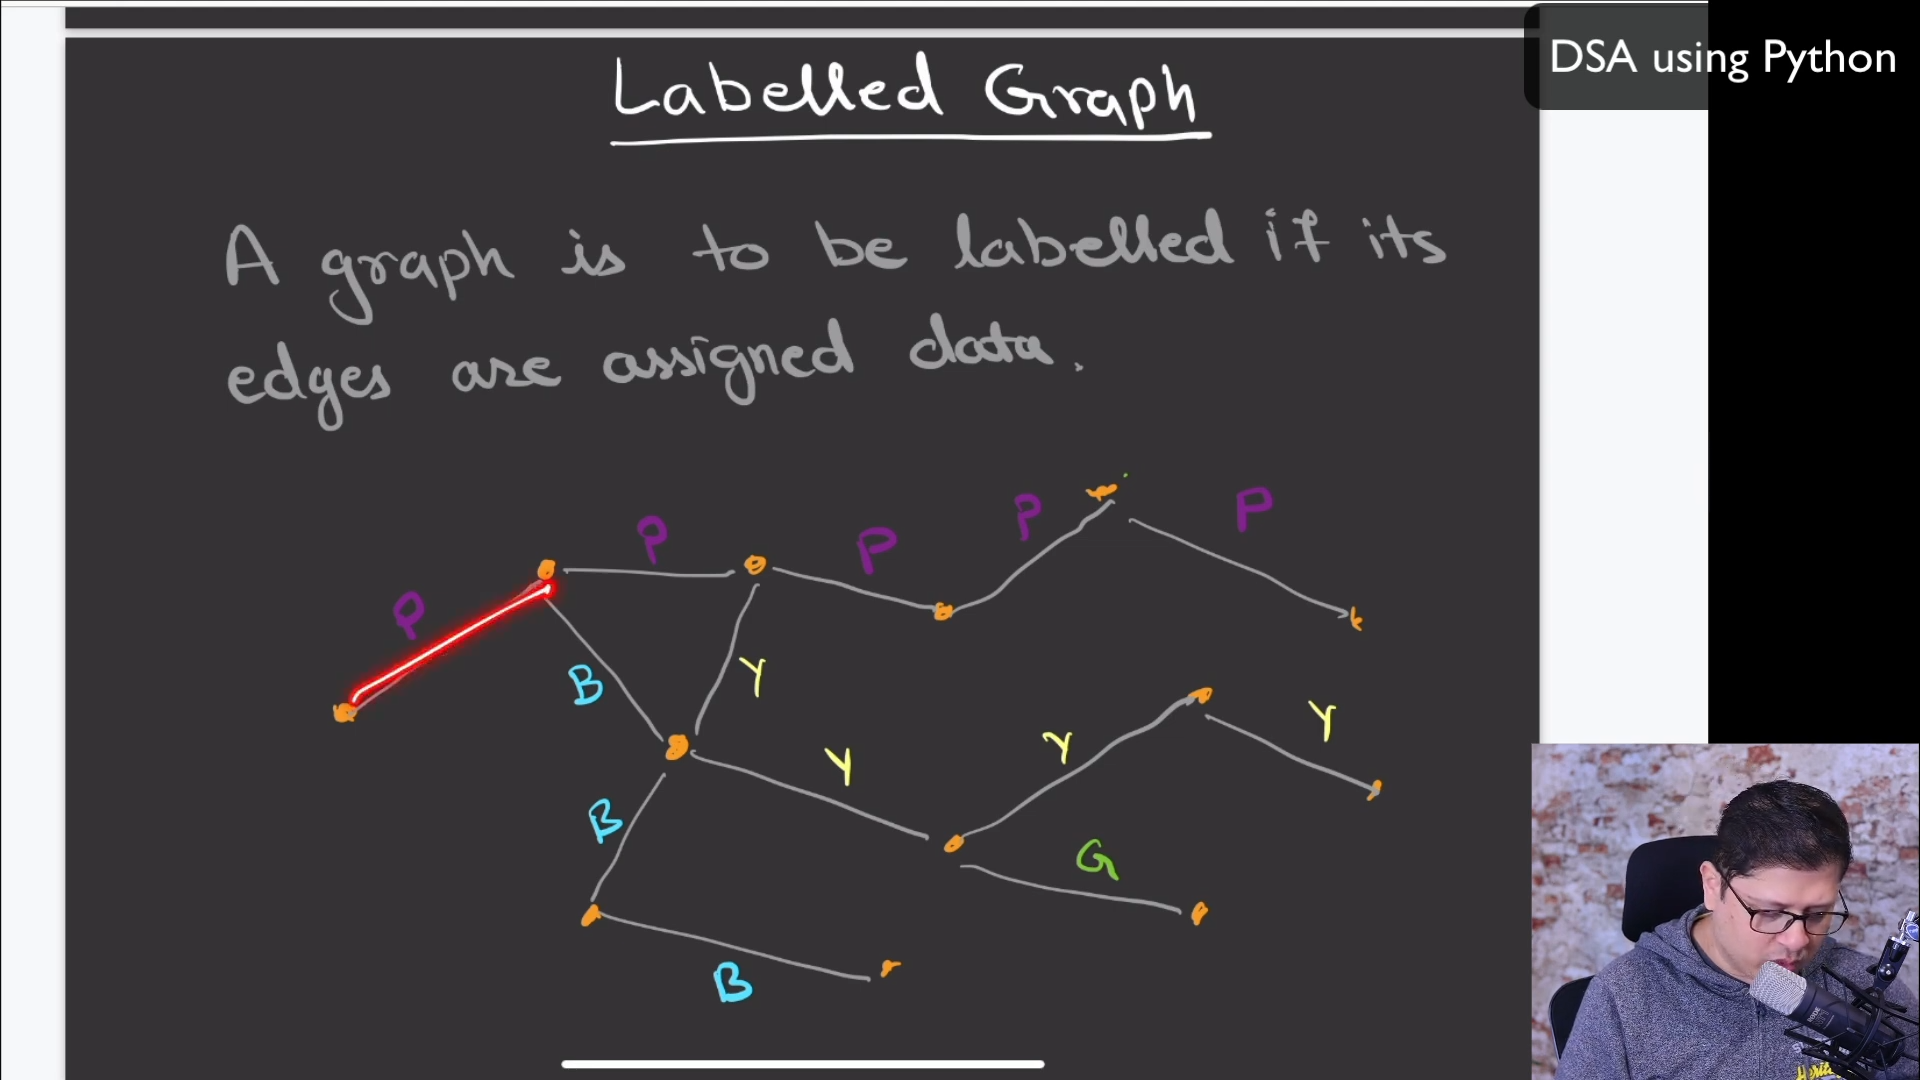 DSA using Python
Labelled Graph
A graph is to be labelled if its
edges are assigned data.
P
P
P
P
P
B
Y
Y
Y
Y
B
G
B